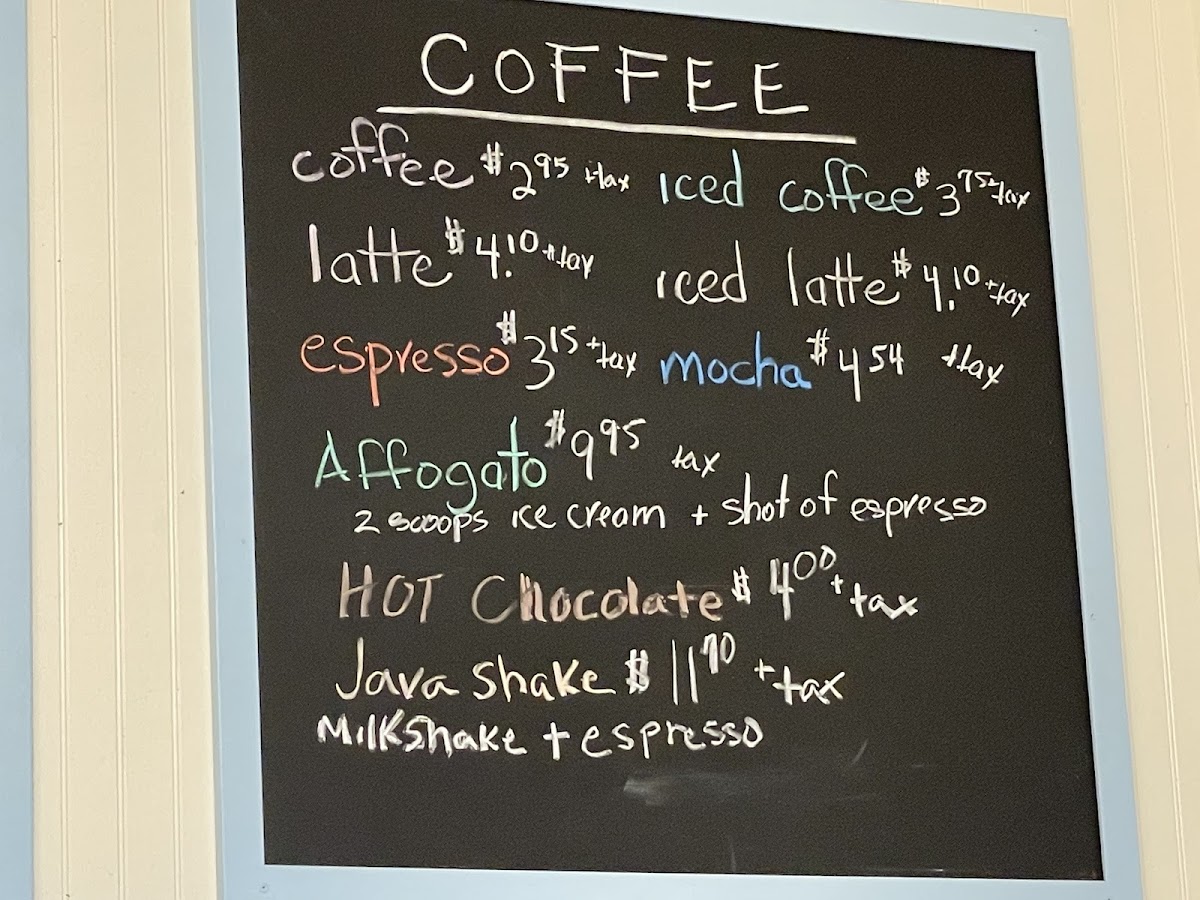 COFFEE
coffee $2.95 +tax iced coffee $3.75 +tax
latte $4.10 +tax iced latte $4.10 +tax
espresso $3.15 +tax mocha $4.54 +tax
Affogato $9.95 tax
2 scoops ice cream + shot of espresso
HOT Chocolate $4.00 + tax
Java Shake $11.90 + tax
Milkshake + espresso